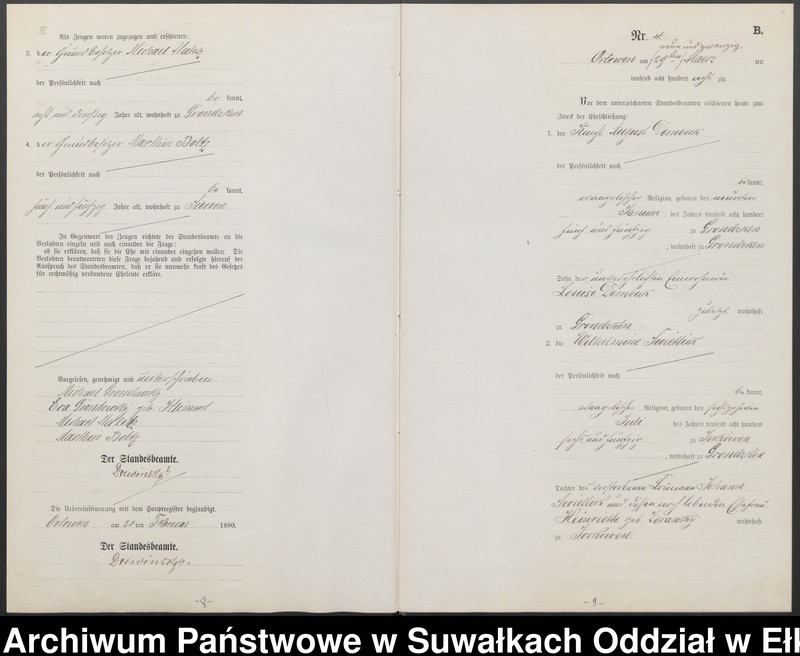 Als Zeugen waren zugezogen und erschienen:
3. der Grundbesitzer Michael
der Persönlichkeit nach
be kannt,
acht und dreißig Jahre alt, wohnhaft zu Grondzken
4. der Grundbesitzer Martin Boltz
der Persönlichkeit nach
be kannt,
fünf und fünfzig Jahre alt, wohnhaft zu
In Gegenwart der Zeugen richtete der Standesbeamte an die
Verlobten einzeln und nach einander die Frage:
ob sie erklären, daß sie die Ehe mit einander eingehen wollen. Die
Verlobten beantworteten diese Frage bejahend und erfolgte hierauf der
Ausspruch des Standesbeamten, daß er sie nunmehr kraft des Gesetzes
für rechtmäßig verbundene Eheleute erkläre.
Vorgelesen, genehmigt und unterschrieben
Michael
Eva geb.
Michael
Martin Boltz
Der Standesbeamte.
Die Uebereinstimmung mit dem Hauptregister beglaubigt.
Orlowen am ten Februar 1880.
Der Standesbeamte.
-8-
B.
Nr. 4.
neun und zwanzig
Orlowen am (29ten) Maerz ten
tausend acht hundert acht zig.
Vor dem unterzeichneten Standesbeamten erschienen heute zum
Zweck der Eheschließung:
1. der August
der Persönlichkeit nach
be kannt,
evangelischer Religion, geboren den neunten
Januar des Jahres tausend acht hundert
fünf und fünfzig zu Grondzken
, wohnhaft zu Grondzken
Sohn der unverehelichten Einwohnerin
Louise
zuletzt wohnhaft
zu Grondzken
2. die Wilhelmine
der Persönlichkeit nach
be kannt,
evangelischer Religion, geboren den
des Jahres tausend acht hundert
sechs und fünfzig zu
, wohnhaft zu Grondzken
Tochter des verstorbenen Johann
und dessen noch lebenden Ehefrau
Henriette geb. wohnhaft
zu
-9-
Archiwum Państwowe w Suwałkach Oddział w Ełk